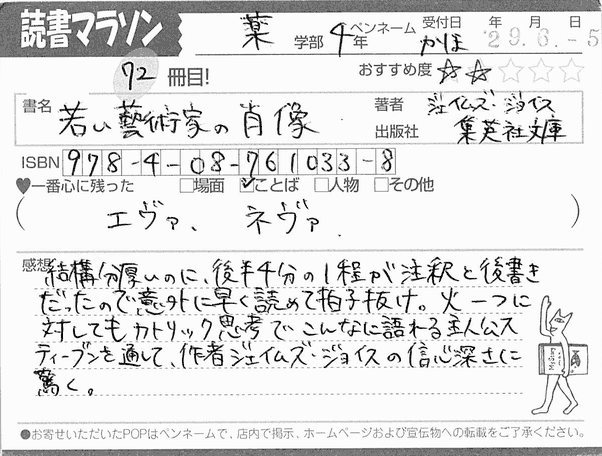 読書マラソン
薬 学部 4年 ペンネーム かほ 受付日 年 月 日 '29.6.-5
72 冊目! おすすめ度 ☆☆☆☆☆
書名 若い藝術家の肖像
著者 ジェイムズ・ジョイス
出版社 集英社文庫
ISBN 978-4-08-761033-8
♥一番心に残った □場面 ☑ことば □人物 □その他
( エヴァ、ネヴァ. )
感想 結構分厚いのに、後半4分の1程が注釈と後書き
だったので意外に早く読めて拍子抜け。火一つに
対してもカトリック思考でこんなに語れる主人公ス
ティーブンを通して、作者ジェイムズ・ジョイスの信心深さに
驚く。
●お寄せいただいたPOPはペンネームで、店内で掲示、ホームページおよび宣伝物への転載をご了承ください。